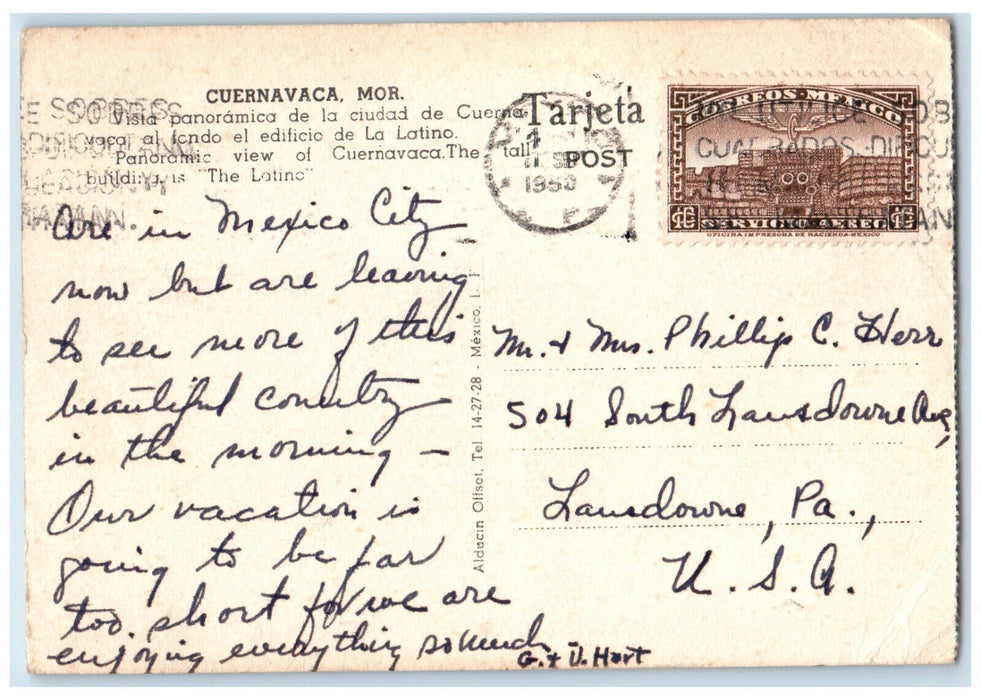 CUERNAVACA, MOR.
Vista panorámica de la ciudad de Cuerna-
vaca al fondo el edificio de La Latino.
Panoramic view of Cuernavaca. The tall
building is "The Latino"
Tarjeta
POST
1950
CORREOS · MEXICO
SERVICIO AEREO
OFICINA IMPRESORA DE HACIENDA-MEXICO
Are in Mexico City
now but are leaving
to see more of this
beautiful country
in the morning —
Our vacation is
going to be far
too short for we are
enjoying everything so much —
G. + U. Hart
Alducin Offset, Tel. 14-27-28 - México,
Mr. + Mrs. Phillip C. Herr
504 South Lansdowne Ave,
Lansdowne, Pa.,
U. S. A.